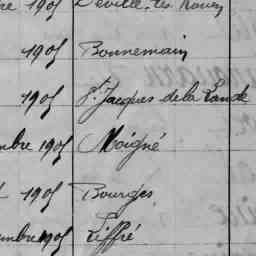 re 1905 Déville-les-Rouen
1905 Bonnemain
1905 St. Jacques de la Lande
mbre 1905 Moigné
1905 Bourges
embre 1905 Liffré